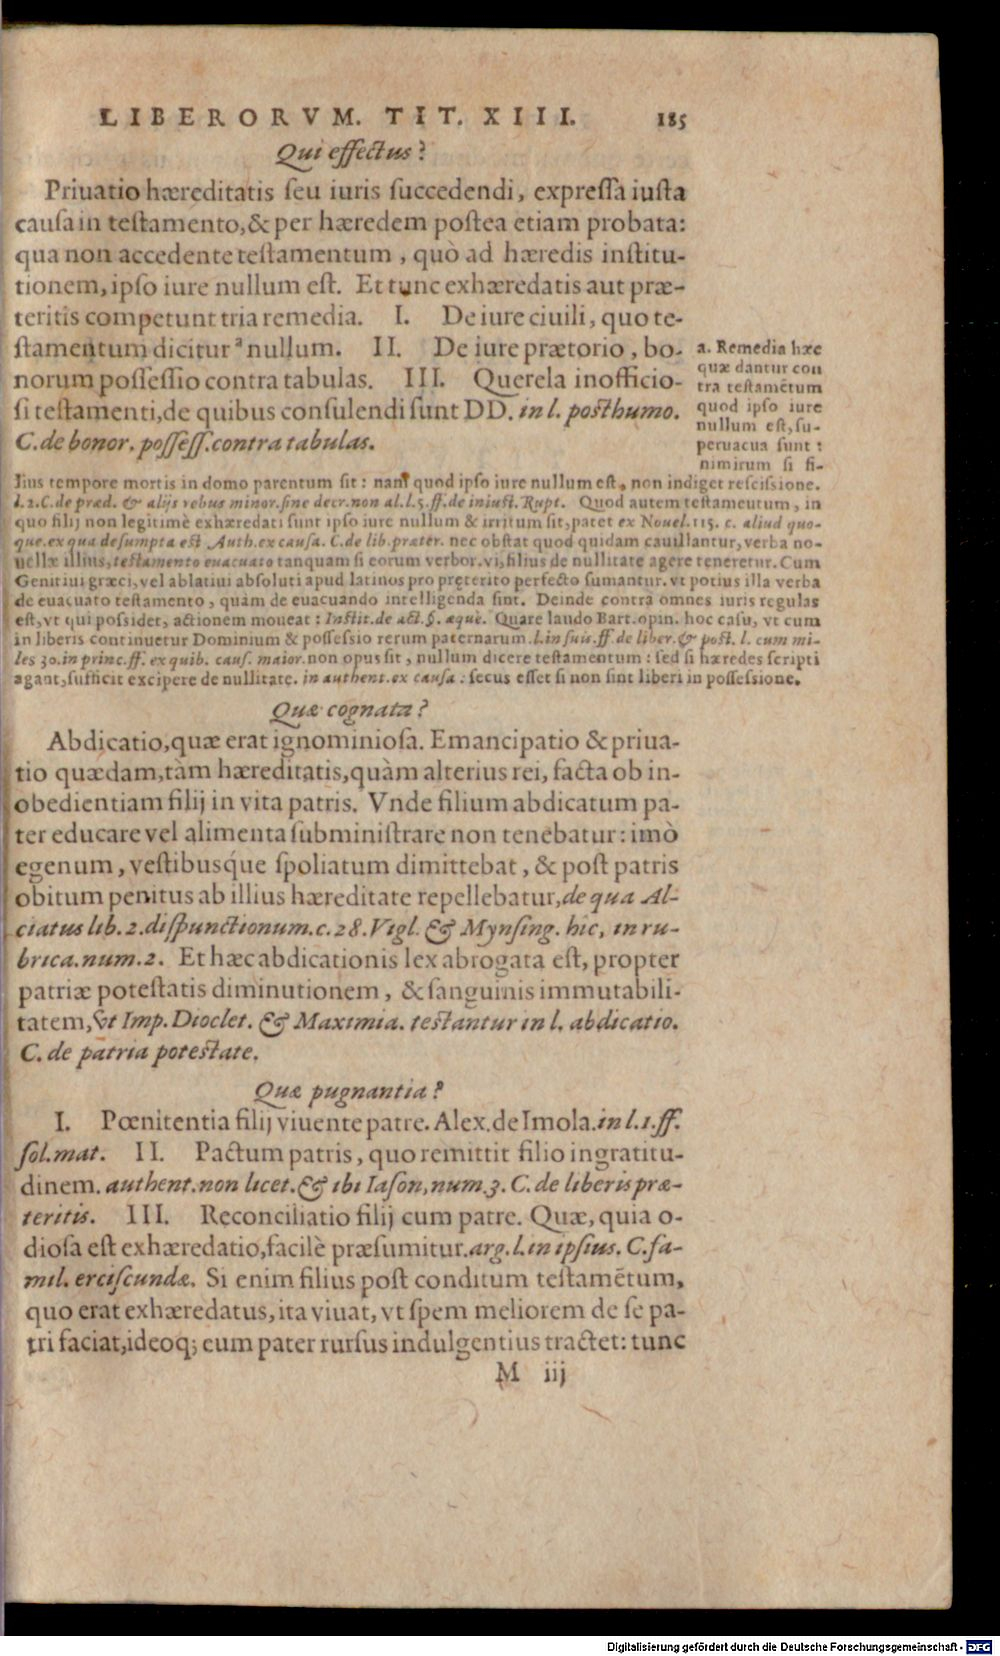 LIBERORVM. TIT. XIII. 185
Qui effectus?
Priuatio hæreditatis ſeu iuris ſuccedendi, expreſſa iuſta
cauſa in teſtamento, & per hæredem poſtea etiam probata:
qua non accedente teſtamentum, quò ad hæredis inſtitu-
tionem, ipſo iure nullum eſt. Et tunc exhæredatis aut præ-
teritis competunt tria remedia. I. De iure ciuili, quo te-
ſtamentum dicitur ª nullum. II. De iure prætorio, bo-
norum poſſeſſio contra tabulas. III. Querela inofficio-
ſi teſtamenti, de quibus conſulendi ſunt DD. in l. poſthumo.
C. de bonor. poſſeſſ. contra tabulas.
a. Remedia hæc
quæ dantur con
tra teſtamẽtum
quod ipſo iure
nullum eſt, ſu-
peruacua ſunt:
nimirum ſi fi-
lius tempore mortis in domo parentum ſit: nam quod ipſo iure nullum eſt, non indiget reſciſſione.
l.2. C. de præd. & alijs rebus minor. ſine decr. non al. l.5. ff. de iniuſt. Rupt. Quod autem teſtameutum, in
quo filij non legitimè exhæredati ſunt ipſo iure nullum & irritum ſit, patet ex Nouel. 115. c. aliud quo-
que. ex qua deſumpta eſt Auth. ex cauſa. C. de lib. præter. nec obſtat quod quidam cauillantur, verba no-
uellæ illius, teſtamento euacuato tanquam ſi eorum verbor. vi, filius de nullitate agere teneretur. Cum
Genitiui græci, vel ablatiui abſoluti apud latinos pro pręterito perfecto ſumantur. vt potius illa verba
de euacuato teſtamento, quàm de euacuando intelligenda ſint. Deinde contrà omnes iuris regulas
eſt, vt qui poſſidet, actionem moueat: Inſtit. de act. §. æquè. Quare laudo Bart. opin. hoc caſu, vt cum
in liberis continuetur Dominium & poſſeſſio rerum paternarum. l. in ſuis. ff. de liber. & poſt. l. cum mi-
les 30. in princ. ff. ex quib. cauſ. maior. non opus ſit, nullum dicere teſtamentum: ſed ſi hæredes ſcripti
agant, ſufficit excipere de nullitate. in authent. ex cauſa: ſecus eſſet ſi non ſint liberi in poſſeſſione.
Quæ cognata?
Abdicatio, quæ erat ignominioſa. Emancipatio & priua-
tio quædam, tàm hæreditatis, quàm alterius rei, facta ob in-
obedientiam filij in vita patris. Vnde filium abdicatum pa-
ter educare vel alimenta ſubminiſtrare non tenebatur: imò
egenum, veſtibusq́ue ſpoliatum dimittebat, & poſt patris
obitum penitus ab illius hæreditate repellebatur, de qua Al-
ciatus lib. 2. diſpunctionum. c. 28. Vigl. & Mynſing. hic, in ru-
brica. num. 2. Et hæc abdicationis lex abrogata eſt, propter
patriæ poteſtatis diminutionem, & ſanguinis immutabili-
tatem, vt Imp. Dioclet. & Maximia. teſtantur in l. abdicatio.
C. de patria poteſtate.
Quæ pugnantia?
I. Pœnitentia filij viuente patre. Alex. de Imola. in l. 1. ff.
ſol. mat. II. Pactum patris, quo remittit filio ingratitu-
dinem. authent. non licet. & ibi Iaſon, num. 3. C. de liberis præ-
teritis. III. Reconciliatio filij cum patre. Quæ, quia o-
dioſa eſt exhæredatio, facilè præſumitur. arg. l. in ipſius. C. fa-
mil. erciſcundæ. Si enim filius poſt conditum teſtamẽtum,
quo erat exhæredatus, ita viuat, vt ſpem meliorem de ſe pa-
tri faciat, ideoq; eum pater rurſus indulgentius tractet: tunc
M iij
Digitalisierung gefördert durch die Deutsche Forschungsgemeinschaft - DFG